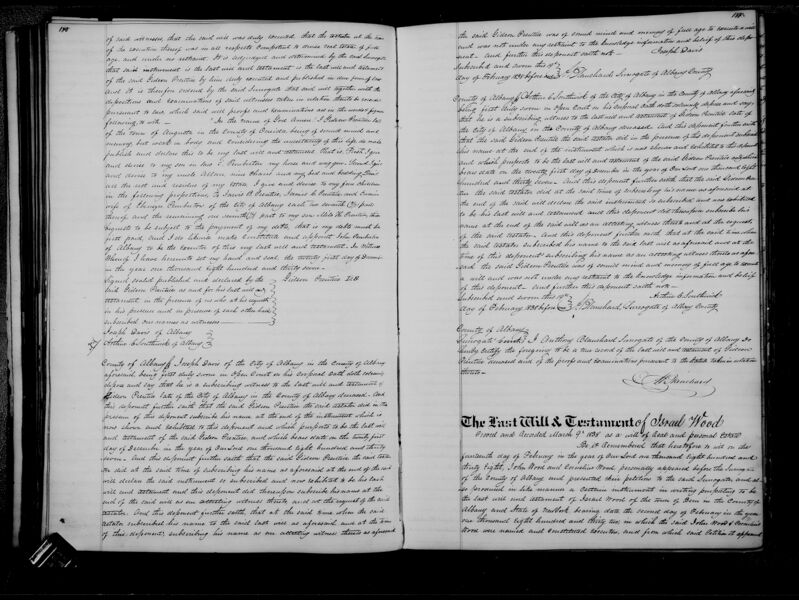 of said witnesses, that the said will was duly executed, that the testator at the time
of the execution thereof was in all respects competent to devise real estate of full
age, and under no restraint. It is adjudged and determined by the said Surrogate
that said instrument is the last will and testament is the last will and testament
of the said Gideon Prentice by him duly executed and published in due form of law
And it is further ordered by the said Surrogate that said will together with the
depositions and examinations of said witnesses taken in relation thereto be recorded
pursuant to law which said will proofs and examinations are in the words & figures
following to wit — "In the name of God Amen I Gideon Prentice
of the town of Augusta in the County of Oneida being of sound mind and
memory, but weak in body and considering the uncertainty of this life do make
publish and declare this to be my last will and testament. that is. First, I give
and devise to my son in law Pemberton my horse and waggon.
and devise to my uncle chairs and my bed and bedding
all the rest and residue of my estate I give and devise to my children
in the following proportion, to Prentice, James Prentice and
wife of Ebenezer Pemberton of the City of Albany each two sevenths (2/7) part
thereof and the remaining one seventh (1/7) part to my son Prentice, this
bequests to be subject to the payment of my debts, that is my debts must be
first paid, and I do likewise make Constitute and appoint John
of Albany to be the executor of this my last will and testament. In witness
Whereof I have hereunto set my hand and seal the twenty first day of December
in the year one thousand eight hundred and thirty seven —
Signed sealed published and declared by the Gideon Prentice LS
said Gideon Prentice as and for his last will and
testament in the presence of us who at his request
in his presence and in presence of each other have
subscribed our names as witnesses —
Joseph Davis of Albany
Arthur C. Southwick of Albany
County of Albany ss Joseph Davis of the City of Albany in the County of Albany
aforesaid being first duly sworn in Open Court on his corporal oath doth solemnly
depose and say that he is a subscribing witness to the last will and testament of
Gideon Prentice late of the City of Albany in the County of Albany deceased. And
this deponent further saith that the said Gideon Prentice the said testator did in the
presence of this deponent subscribe his name at the end of the instrument which is
now shown and exhibited to this deponent and which purports to be the last will
and testament of the said Gideon Prentice, and which bears date on the twenty first
day of December in the year of Our Lord one thousand eight hundred and thirty
seven. And this deponent further saith that the said Gideon Prentice the said testa
tor did at the said time of subscribing his name as aforesaid at the end of the said
will declare the said instrument so subscribed and now exhibited to be his last
will and testament and this deponent did thereupon subscribe his name at the
end of the said will as an attesting witness thereto and at the request of the said
testator. And this deponent further saith, that at the said time when the said
testator subscribed his name to the said last will as aforesaid and at the time
of this deponent, subscribing his name as an attesting witness thereto as aforesaid
the said Gideon Prentice was of sound mind and memory of full age to execute a will
and was not under any restraint to the knowledge information and belief of this depo-
nent. And further this deponent saith not —
Joseph Davis
Subscribed and sworn this
day of February 1838 before me A. Blanchard, Surrogate of Albany County
County of Albany ss Arthur C. Southwick of the City of Albany in the County of Albany aforesaid
being first duly sworn in Open Court on his corporal oath doth solemnly depose and say
that he is a subscribing witness to the last will and testament of Gideon Prentice late of
the City of Albany in the County of Albany deceased. And this deponent further saith
that the said Gideon Prentice the said testator did in the presence of this deponent subscribe
his name at the end of the instrument which is now shown and exhibited to this deponent
and which purports to be the last will and testament of the said Gideon Prentice which
bears date on the twenty first day of December in the year of Our Lord one thousand eight
hundred and thirty seven. And this deponent further saith, that the said Gideon Pren-
tice the said testator did at the said time of subscribing his name as aforesaid at
the end of the said will declare the said instrument so subscribed and now exhibited
to be his last will and testament and this deponent did thereupon subscribe his
name at the end of the said will as an attesting witness thereto and at the request
of the said testator. And this deponent further saith that at the said time when
the said testator subscribed his name to the said last will as aforesaid and at the
time of this deponent subscribing his name as an attesting witness thereto as afore-
said the said Gideon Prentice was of sound mind and memory of full age to execute
a will and was not under any restraint to the knowledge information and belief
of this deponent. And further this deponent saith not —
Subscribed and sworn this Arthur C. Southwick
day of February 1838 before me A. Blanchard, Surrogate of Albany County
County of Albany
Surrogate Court I Anthony Blanchard Surrogate of the County of Albany do
hereby certify the foregoing to be a true record of the last will and testament of Gideon
Prentice deceased and of the proofs and examination pursuant to the taken in relation
thereto —
A. Blanchard
The Last Will & Testament of Israel Wood
Proved and Recorded March 9th 1838 as a will of Real and personal Estate
Be it Remembered that heretofore to wit on the
fourteenth day of February in the year of Our Lord one thousand eight hundred and
thirty eight, John Wood and Cornelius Wood personally appeared before the Surrogate
of the County of Albany and presented their petition to the said Surrogate, and al-
so presented in like manner a certain instrument in writing purporting to be
the last will and testament of Israel Wood of the town of Bern in the County of
Albany and State of New York bearing date the second day of February in the year
one thousand eight hundred and thirty in which the said John Wood & Cornelius
Wood were named and constituted executors, and from which said petition it appeared